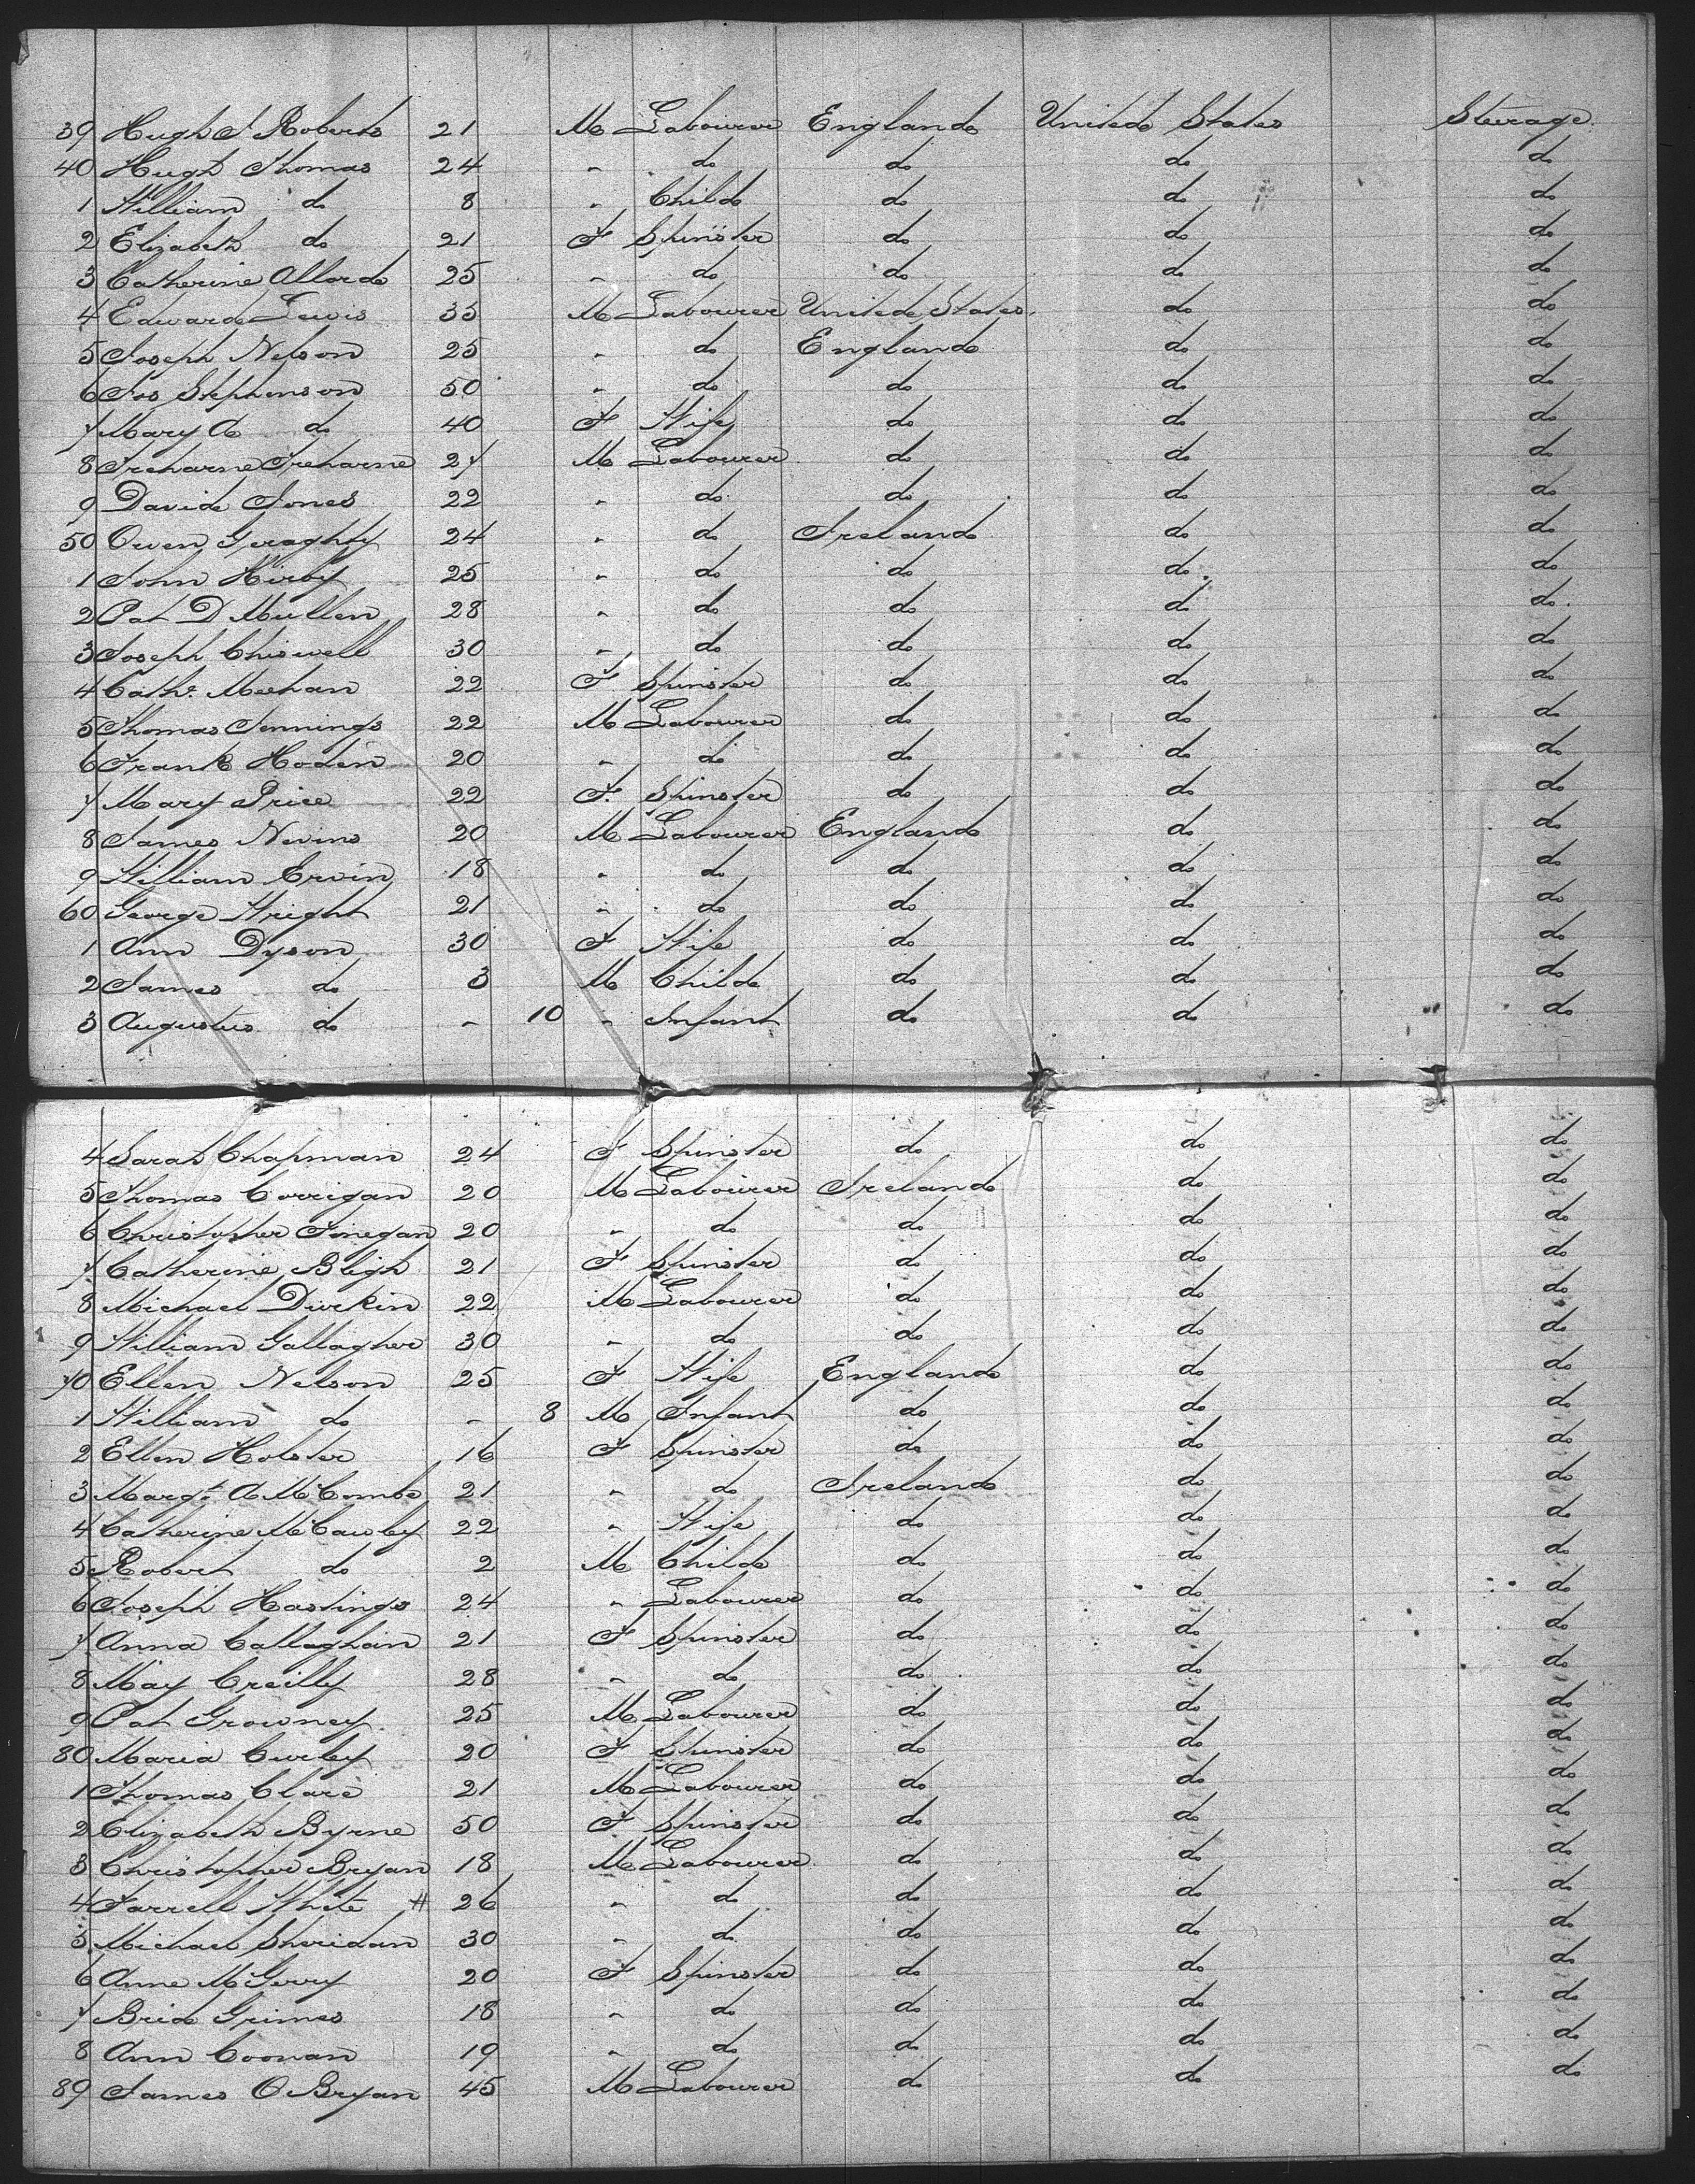 39 Hugh J Roberts 21 M Labourer England United States Steerage.
40 Hugh Thomas 24 " do do do do
1 William do 8 " Child do do do
2 Elizabeth do 21 F Spinster do do do
3 Catherine Allard 25 " do do do do
4 Edward Lewis 35 M Labourer United States. do do
5 Joseph Nelson 25 " do England do do
6 Jos Stephenson 50 " do do do do
7 Mary A do 40 F Wife do do do
8 Treharne Treharne 27 M Labourer do do do
9 David Jones 22 " do do do do
50 Owen Geraghty 24 " do Ireland do do
1 John Kirby 25 " do do do do
2 Pat D Mullen 28 " do do do do
3 Joseph Chiswell 30 " do do do do
4 Cathe. Meehan 22 F Spinster do do do
5 Thomas Jennings 22 M Labourer do do do
6 Frank Hoden 20 " do do do do
7 Mary Price 22 F. Spinster do do do
8 James Nevins 20 M Labourer England do do
9 William Ervin 18 " do do do do
60 George Wright 21 " do do do do
1 Ann Dyson 30 F Wife do do do
2 James do 3 M Child do do do
3 Augustus do - 10 " Infant do do do
4 Sarah Chapman 24 F Spinster do do do
5 Thomas Corrigan 20 M Labourer Ireland do do
6 Christopher Finegan 20 " do do do do
7 Catherine Bligh 21 F Spinster do do do
8 Michael Durkin 22 M Labourer do do do
9 William Gallagher 30 " do do do do
70 Ellen Nelson 25 F Wife England do do
1 William do - 8 M Infant do do do
2 Ellen Holster 16 F Spinster do do do
3 Margt. A McCombe 21 " do Ireland do do
4 Catherine McCawley 22 " Wife do do do
5 Robert do 2 M Child do do do
6 Joseph Hastings 24 " Labourer do do do
7 Anna Callaghan 21 F Spinster do do do
8 May Creilly 28 " do do do do
9 Pat Growney 25 M Labourer do do do
80 Maria Curley 20 F Spinster do do do
1 Thomas Clare 21 M Labourer do do do
2 Elizabeth Byrne 50 F Spinster do do do
3 Christopher Bryan 18 M Labourer do do do
4 Farrell White # 26 " do do do do
5 Michael Sheridan 30 " do do do do
6 Anne McGerry 20 F Spinster do do do
7 Brid Grimes 18 " do do do do
8 Ann Coonan 19 " do do do do
89 James O Bryan 45 M Labourer do do do